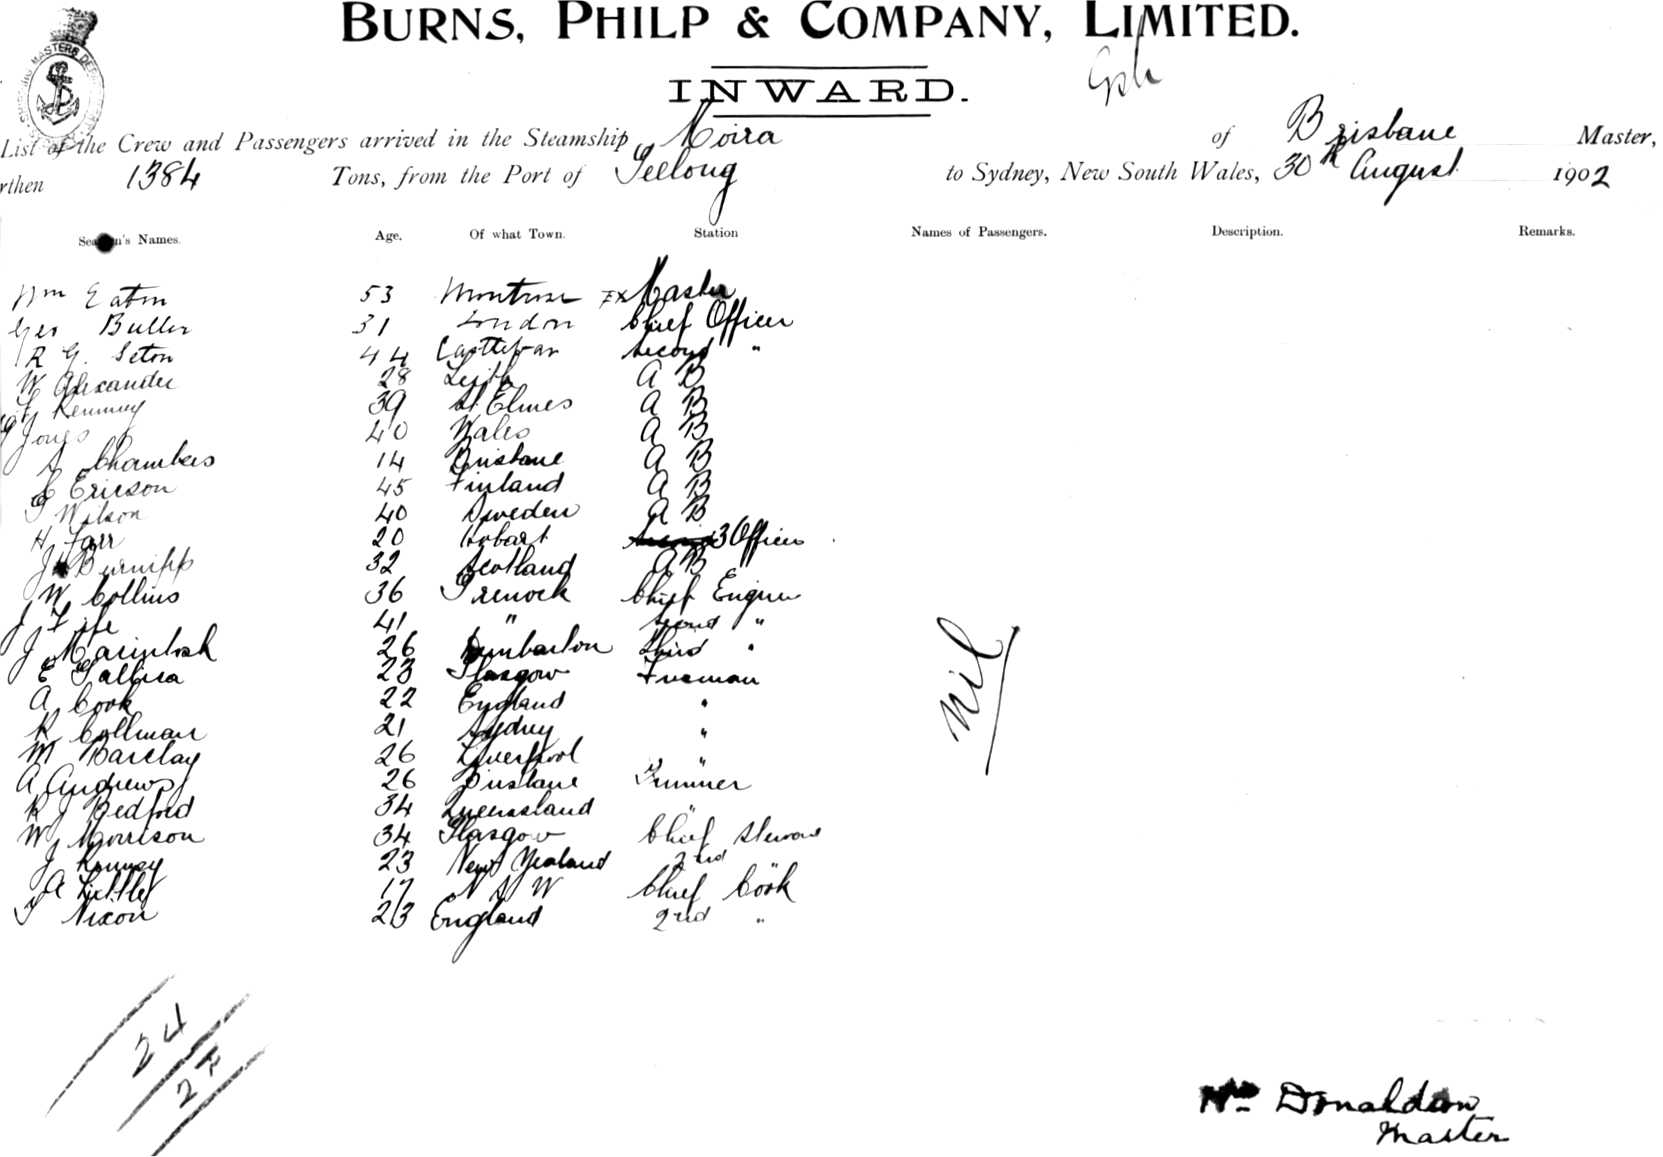 BURNS, PHILP & COMPANY, LIMITED.
INWARD.
List of the Crew and Passengers arrived in the Steamship Moira of Brisbane Master,
rthen 1384 Tons, from the Port of Geelong to Sydney, New South Wales, 30th August 1902
Seaman's Names. Age. Of what Town. Station Names of Passengers. Description. Remarks.
Wm Eaton 53 Montrose Ex Master
Geo Butler 31 London Chief Officer
R G. Seton 44 Castlebar Second "
W Alexander 28 Leith A B
Kenney 39 St Elmes A B
Jones 40 Wales A B
A Chambers 14 Brisbane A B
Ericson 45 Finland A B
Wilson 40 Sweden A B
H Farr 20 Hobart 3 Officer
J Burnipp 32 Scotland A B
W Collins 36 Grenock Chief Engineer
J Fife 41 " Second "
J Macintosh 26 Dumbarton Third "
E Gallira 23 Glasgow Fireman
A Cook 22 England "
R Collman 21 Sydney "
M Barclay 26 Liverpool "
A Andrews 26 Brisbane Trimmer
R J Bedford 34 Queensland "
W Morrison 34 Glasgow Chief Steward
J 23 New Zealand 2nd
A 17 N S W Chief Cook
T Nixon 23 England 2nd "
nil
24
Wm Donaldson
Master